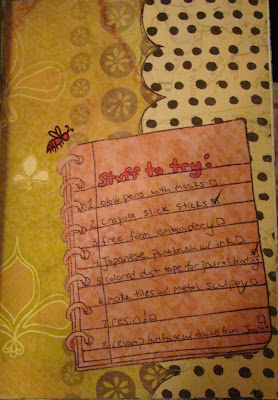 Stuff to try:
1. blow pens with masks
2. crayola slick sticks
3. free form embroidery
4. Japanese paintbrush w/ ink
5. colored duct tape for journal binding
6. make tiles w/ metal sculpey
7. resin!
8. w/ Journal